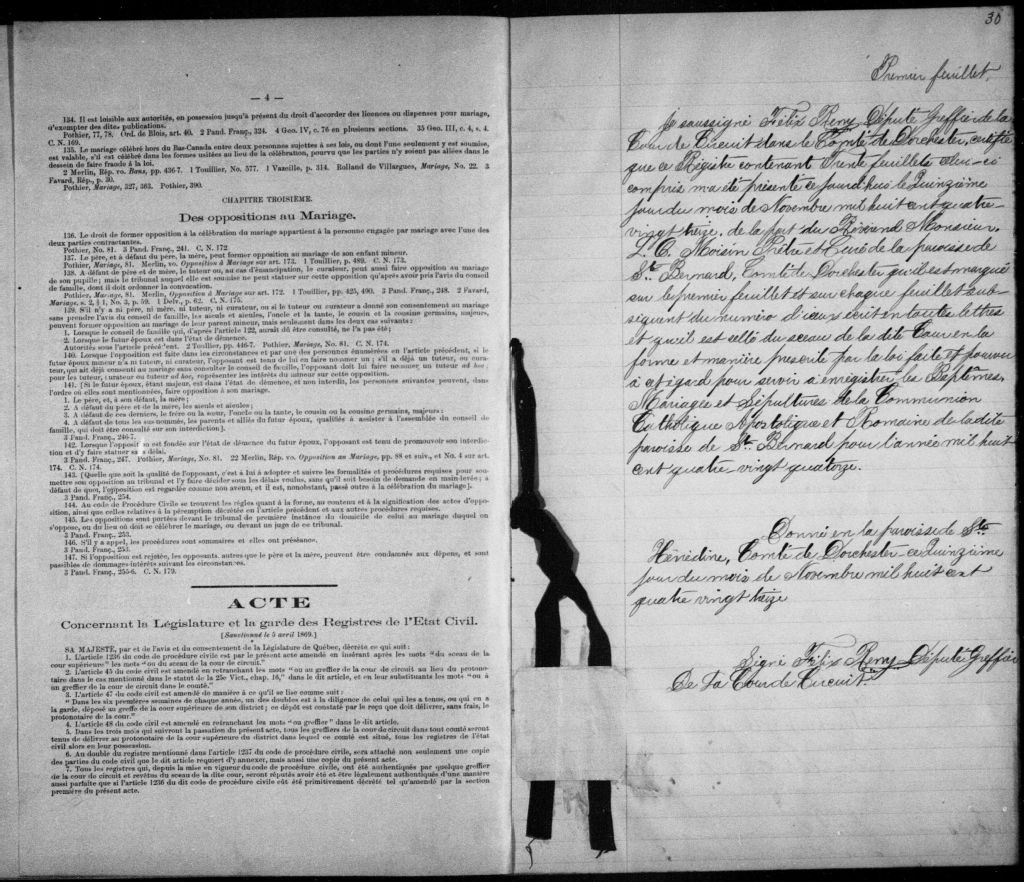 — 4 —
134. Il est loisible aux autorités, en possession jusqu'à présent du droit d'accorder les licences ou dispenses pour mariage,
d'exempter des dites publications.
Pothier, 77, 78. Ord. de Blois, art. 40. 2 Pand. Franç., 324. 4 Geo. IV, c. 76 en plusieurs sections. 35 Geo. III, c. 4, s. 4.
C. N. 169.
135. Le mariage célébré hors du Bas-Canada entre deux personnes sujettes à ses lois, ou dont l'une seulement y est soumise,
est valable, s'il est célébré dans les formes usitées au lieu de la célébration, pourvu que les parties n'y soient pas allées dans le
dessein de faire fraude à la loi.
2 Merlin, Rép. vo. Bans, pp. 436-7. 1 Toullier, No. 577. 1 Vazeille, p. 314. Rolland de Villargues, Mariage, No. 22. 3
Favard, Rép., p. 30.
Pothier, Mariage, 327, 363. Pothier, 390.
CHAPITRE TROISIÈME.
Des oppositions au Mariage.
136. Le droit de former opposition à la célébration du mariage appartient à la personne engagée par mariage avec l'une des
deux parties contractantes.
Pothier, No. 81. 3 Pand. Franç., 241. C. N. 172
137. Le père, et à défaut du père, la mère, peut former opposition au mariage de son enfant mineur.
Pothier, Mariage, 81. Merlin, vo. Opposition à Mariage sur art. 173. 1 Toullier, p. 489. C. N. 173.
138. A défaut de père et de mère, le tuteur ou, au cas d'émancipation, le curateur, peut aussi faire opposition au mariage
de son pupille; mais le tribunal auquel elle est soumise ne peut statuer sur cette opposition qu'après avoir pris l'avis du conseil
de famille, dont il doit ordonner la convocation.
Pothier, Mariage, 81. Merlin, Opposition à Mariage sur art. 172. 1 Toullier, pp. 425, 490. 3 Pand. Franç., 248. 2 Favard,
Mariage, s. 2, § 1, No. 3, p. 59. 1 Delv., p. 62. C. N. 175.
139. S'il n'y a ni père, ni mère, ni tuteur, ni curateur, ou si le tuteur ou curateur a donné son consentement au mariage
sans prendre l'avis du conseil de famille, les aïeuls et aïeules, l'oncle et la tante, le cousin et la cousine germains, majeurs,
peuvent former opposition au mariage de leur parent mineur, mais seulement dans les deux cas suivants:
1. Lorsque le conseil de famille qui, d'après l'article 122, aurait dû être consulté, ne l'a pas été;
2. Lorsque le futur époux est dans l'état de démence.
Autorités sous l'article précéd'ent. 2 Toullier, pp. 446-7. Pothier, Mariage, No. 81. C. N. 174.
140. Lorsque l'opposition est faite dans les circonstances et par une des personnes énumérées en l'article précédent, si le
futur époux mineur n'a ni tuteur, ni curateur, l'opposant est tenu de lui en faire nommer un; s'il a déjà un tuteur, ou cura-
teur, qui ait déjà consenti au mariage sans consulter le conseil de famille, l'opposant doit lui faire nommer, un tuteur ad hoc,
pour les tuteur, curateur ou tuteur ad hoc, représenter les intérêts du mineur sur cette opposition.
141. [Si le futur époux, étant majeur, est dans l'état de démence, et non interdit, les personnes suivantes peuvent, dans
l'ordre où elles sont mentionnées, faire opposition à son mariage.
1. Le père, et, à son défaut, la mère;
2. A défaut du père et de la mère, les aïeuls et aïeules;
3. A défaut de ces derniers, le frère ou la sœur, l'oncle ou la tante, le cousin ou la cousine germains, majeurs:
4. A défaut de tous les sus-nommés, les parents et alliés du futur époux, qualifiés à assister à l'assemblée du conseil de
famille, qui doit être consulté sur son interdiction].
3 Pand. Franç., 246-7.
142. Lorsque l'opposition est fondée sur l'état de démence du futur époux, l'opposant est tenu de promouvoir son interdic-
tion et d'y faire statuer sans délai.
3 Pand. Franç., 247. Pothier, Mariage, No. 81. 22 Merlin, Rép. vo. Opposition au Mariage, pp. 88 et suiv., et No. 4 sur art.
174. C. N. 174.
143. [Quelle que soit la qualité de l'opposant, c'est à lui à adopter et suivre les formalités et procédures requises pour sou-
mettre son opposition au tribunal et l'y faire décider sous les délais voulus, sans qu'il soit besoin de demande en main-levée; à
défaut de quoi, l'opposition est regardée comme non avenue, et il est, nonobstant, passé outre à la célébration du mariage].
3 Pand. Franç., 254.
144. Au code de Procédure Civile se trouvent les règles quant à la forme, au contenu et à la signification des actes d'oppo-
sition, ainsi que celles relatives à la péremption décrétée en l'article précédent et aux autres procédures requises.
145. Les oppositions sont portées devant le tribunal de première instance du domicile de celui au mariage duquel on
s'oppose, ou du lieu où doit se célébrer le mariage, ou devant un juge de ce tribunal.
3 Pand. Franç., 253.
146. S'il y a appel, les procédures sont sommaires et elles ont préséance.
3 Pand. Franç., 253.
147. Si l'opposition est rejetée, les opposants, autres que le père et la mère, peuvent être condamnés aux dépens, et sont
passibles de dommages-intérêts suivant les circonstances.
3 Pand. Franç., 255-6. C. N. 179.
ACTE
Concernant la Législature et la garde des Registres de l'Etat Civil.
[Sanctionné le 5 avril 1869.]
SA MAJESTÉ, par et de l'avis et du consentement de la Législature de Québec, décrète ce qui suit:
1. L'article 1236 du code de procédure civile est par le présent acte amendé en insérant après les mots "du sceau de la
cour supérieure" les mots "ou du sceau de la cour de circuit."
2. L'article 45 du code civil est amendé en retranchant les mots "ou au greffier de la cour de circuit au lieu du protono-
taire dans le cas mentionné dans le statut de la 25e Vict., chap. 16," dans le dit article, et en leur substituants les mots "ou à
un greffier de la cour de circuit dans le comté."
3. L'article 47 du code civil est amendé de manière à ce qu'il se lise comme suit:
"Dans les six premières semaines de chaque année, un des doubles est à la diligence de celui qui les a tenus, ou qui en a
la garde, déposé au greffe de la cour supérieure de son district; ce dépôt est constaté par le reçu que doit délivrer, sans frais, le
protonotaire de la cour."
4. L'article 48 du code civil est amendé en retranchant les mots "ou greffier" dans le dit article.
5. Dans les trois mois qui suivront la passation du présent acte, tous les greffiers de la cour de circuit dans tout comté seront
tenus de délivrer au protonotaire de la cour supérieure du district dans lequel ce comté est situé, tous les registres de l'état
civil alors en leur possession.
6. Au double du registre mentionné dans l'article 1237 du code de procédure civile, sera attaché non seulement une copie
des parties du code civil que le dit article requiert d'y annexer, mais aussi une copie du présent acte.
7. Tous les registres qui, depuis la mise en vigueur du code de procédure civile, ont été authentiqués par quelque greffier
de la cour de circuit et revêtus du sceau de la dite cour, seront réputés avoir été et être légalement authentiqués d'une manière
aussi parfaite que si l'article 1236 du dit code de procédure civile eût été primitivement décrété tel qu'amendé par la section
première du présent acte.
30
Premier feuillet.
Je soussigné Félix Remy, Député Greffier de la
Cour de Circuit dans le Comté de Dorchester, certifie
que ce Régistre contenant Trente feuillets celui-ci
compris m'a été présenté ce jourd'huis le Quinzième
jour du mois de Novembre mil huit cent quatre-
vingt treize, de la part du Révérend Monsieur
L. O. Moisin Prêtre et Curé de la paroisse de
St. Bernard, Comté de Dorchester qu'il est marqué
sur le premier feuillet et sur chaque feuillet sub-
séquent du numéro d'iceux écrit en toutes lettres
et qu'il est scellé du sceau de la dite Cour en la
forme et manière prescrite par la loi faite et pourvu
à cet égard pour servir à enregistrer les Baptêmes,
Mariages et Sépultures de la Communion
Catholique Apostolique et Romaine de la dite
paroisse de St. Bernard pour l'année mil huit
cent quatre vingt quatorze.
Donné en la paroisse de Ste
Hénédine, Comté de Dorchester ce Quinzième
jour du mois de Novembre mil huit cent
quatre vingt treize
Signé Félix Remy Député Greffier
De La Cour de Circuit